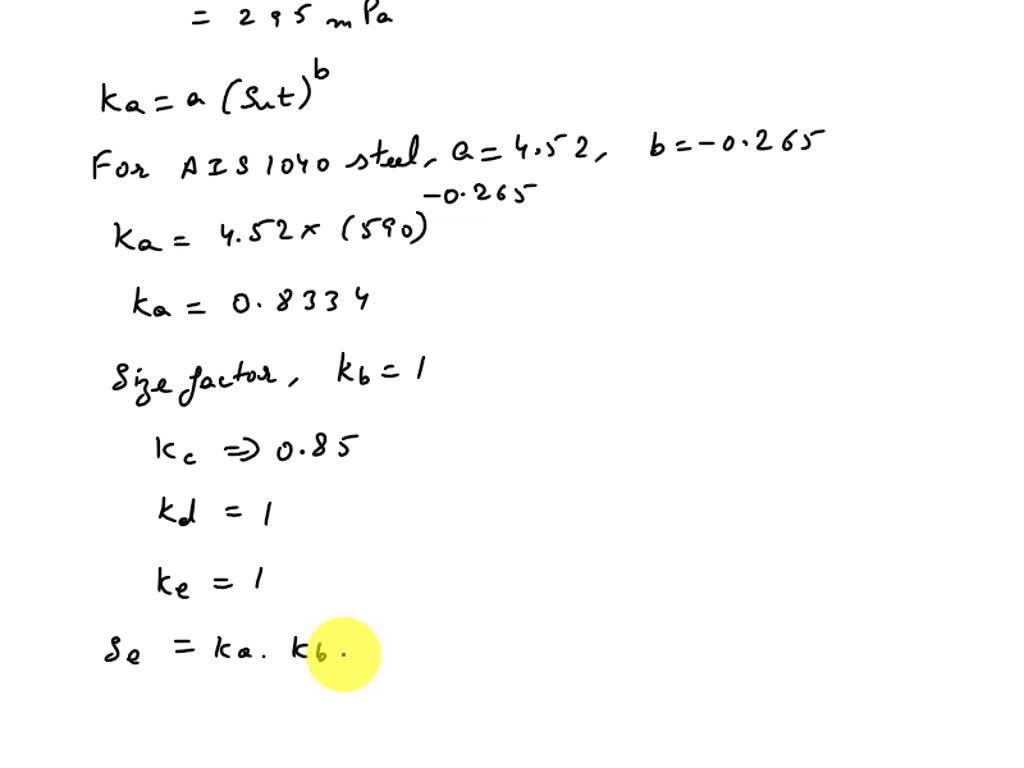 = 295 mPa
ka = a (Sut)^b
For AIS 1040 steel, a = 4.52, b = -0.265
ka = 4.52 × (590)^-0.265
ka = 0.8334
Size factor, kb = 1
kc => 0.85
kd = 1
ke = 1
Se = ka. kb.